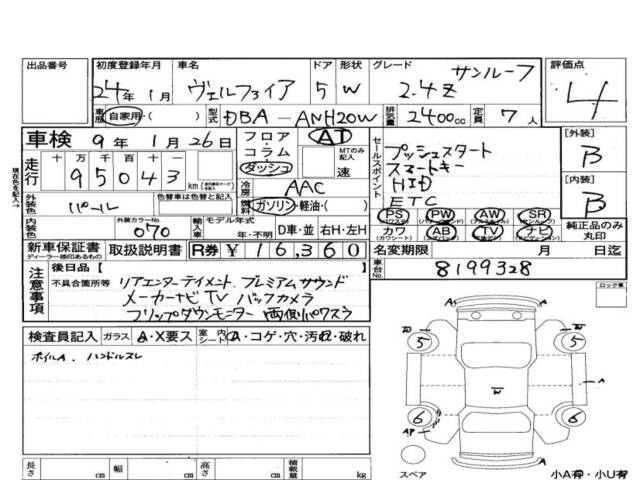 出品番号 初度登録年月 車名 ドア 形状 グレード 評価点
24年 1月 ヴェルファイア 5 W 2.4Z サンルーフ 4
車歴 自家用・( ) 型式 DBA-ANH20W 排気量 2400cc 定員 7人
車検 9年 1月 26日 フロア・コラム・ダッシュ AT MTのみ記入 速
走行 十 万 千 百 十 一
95043 km
冷房 AAC
燃料 ガソリン・軽油・( )
セールスポイント
プッシュスタート
スマートキー
HID
ETC
[外装] B
[内装] B
外装色 パール 色替車は色替と記入
内装色 外装カラーNo. 070 輸入車 モデル年式 年・不明 D車・並 右H・左H
PS PW AW SR
カワ AB TV ナビ 純正品のみ丸印
新車保証書 取扱説明書 R券 ¥16,360
ディーラー印あるもの
名変期限 月 日迄
車台No. 8199328
現在色を記入→
注意事項 後日品【 】
不具合箇所等 リアエンターテイメント.プレミアムサウンド
メーカーナビTV バックカメラ
フリップダウンモニター 両側パワスラ
ロック車
検査員記入 ガラス A・X要ス 室内シート A・コゲ・穴・汚れ・破れ
ホイルA. ハンドルスレ
A
5 5
A
W
6 6
AP
A
スペア 小A有・小U有
長さ cm 幅 cm 高さ cm 積載量 kg